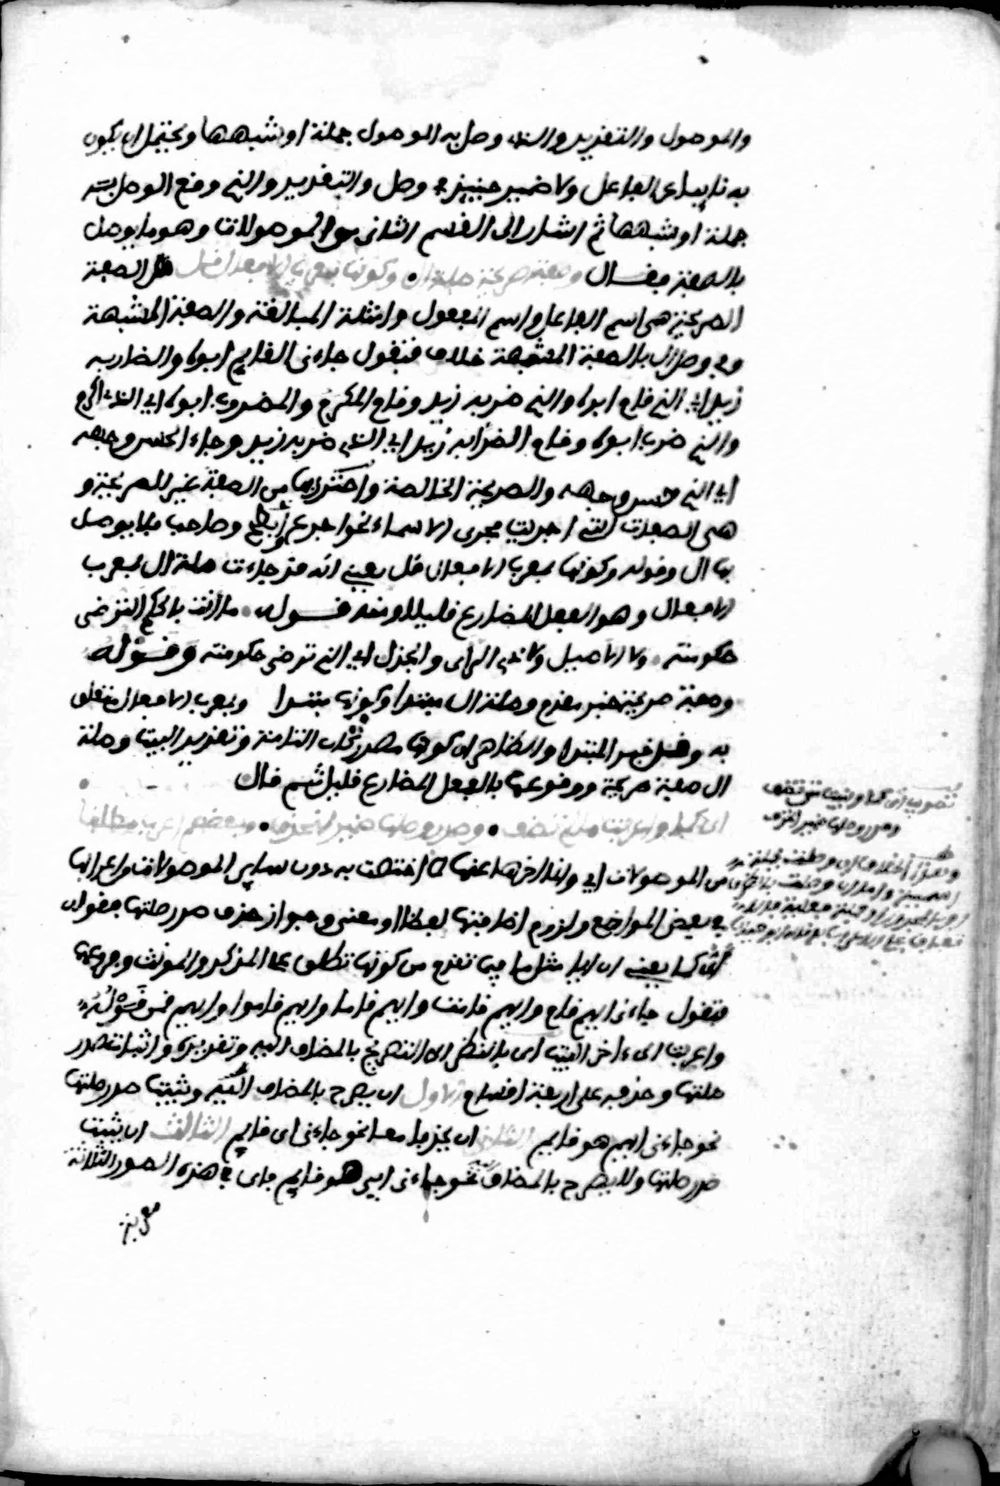 والموصول والتقدير والذي وصل به الموصول جملة او شبهها ويحتمل ان يكون
به نايبا عن الفاعل ولا ضمير حينيذ في وصل والتقدير والذي وقع الوصل به
جملة او شبهها ثم اشار الى القسم الثاني من الموصولات وهو ما يوصل
بالصفة فقال وصفة صريحة صلة ال • وكونها بمعرب الافعال قل الصفة
الصريحة هي اسم الفاعل واسم المفعول وامثلة المبالغة والصفة المشبهة
وفي وصل ال بالصفة المشبهة خلاف فتقول جاءني القايم ابوه والضاربه
زيد اي الذي قام ابوه والذي ضربه زيد وقام المكرم والمضروب ابوه اي الذي اكرم
والذي ضرب ابوه وقام الضرابه زيد اي الذي ضربه زيد وجاء الحسن وجهه
اي الذي حسن وجهه والصريحة الخالصة واحترز بها من الصفة غير الصريحة و
هي الصفات التي اجريت مجرى الاسماء نحو اجرع وابطح وصاحب فلا يوصل
بها ال وقوله وكونها بمعرب الافعال قل يعني انه قد جاءت صلة ال بمعرب
الافعال وهو الفعل المضارع قليلا ومنه قوله • ما أنت بالحكم الترضى
حكومته • ولا الاصيل ولا ذي الراى والجدل اي الذي ترضى حكومته وقوله
وصفة صريحة خبر مقدم وصلة ال مبتدا وكونها مبتدا وبمعرب الافعال متعلق
به وقل خبر المبتدا والظاهر ان كونها مصدر كان التامة وتقدير البيت وصلة
ال صفة صريحة ووقوعها بالفعل المضارع قليل ثم قال
اي كما واعربت ما لم تضف • وصدر وصلها ضمير انحذف • وبعضهم اعرب مطلقا
من الموصولات اي وانما اخرها عنها لما اختصت به دون ساير الموصولات من اعرابها
في بعض المواضع ولزوم اضافتها لفظا او معنى وجواز حذف صدر صلتها فقوله
أي كما يعني ان ايا مثل ما فيما تقدم من كونها تطلق على المذكر والمونث وفروعهما
فتقول جاءني ايهم قام وايهم قامت وايهم قاما وايهم قاموا وايهم قمن قوله
واعربت اي اخر البيت اي بالنظر الى التصريح بالمضاف اليه وتقديره واثبات صدر
صلتها وحذفه على اربعة اقسام الاول ان يصرح بالمضاف اليه ويثبت صدر صلتها
نحو جاءني ايهم هو قايم الثاني ان يحذفا معا نحو جاءني اي قايم الثالث ان يثبت
صدر صلتها ولا يصرح بالمضاف اليه نحو جاءني اي هو قايم فاي في هذه الصور الثلاثة
معربة